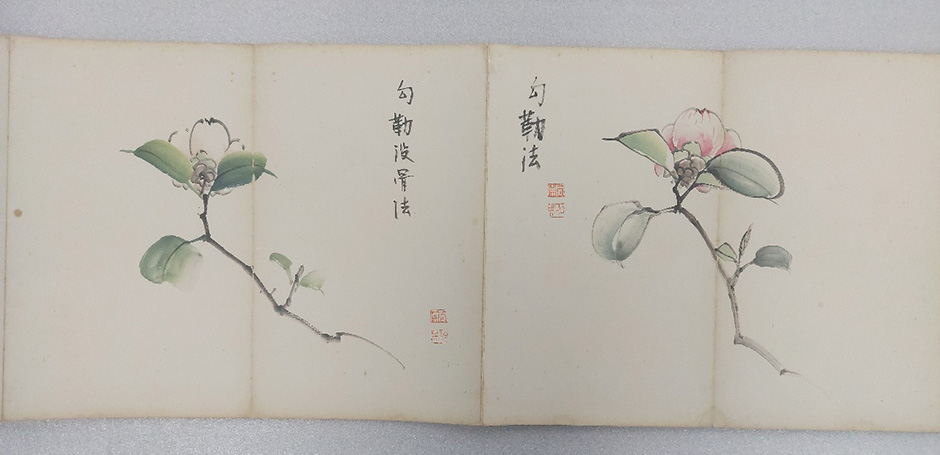 勾勒法
勾勒没骨法